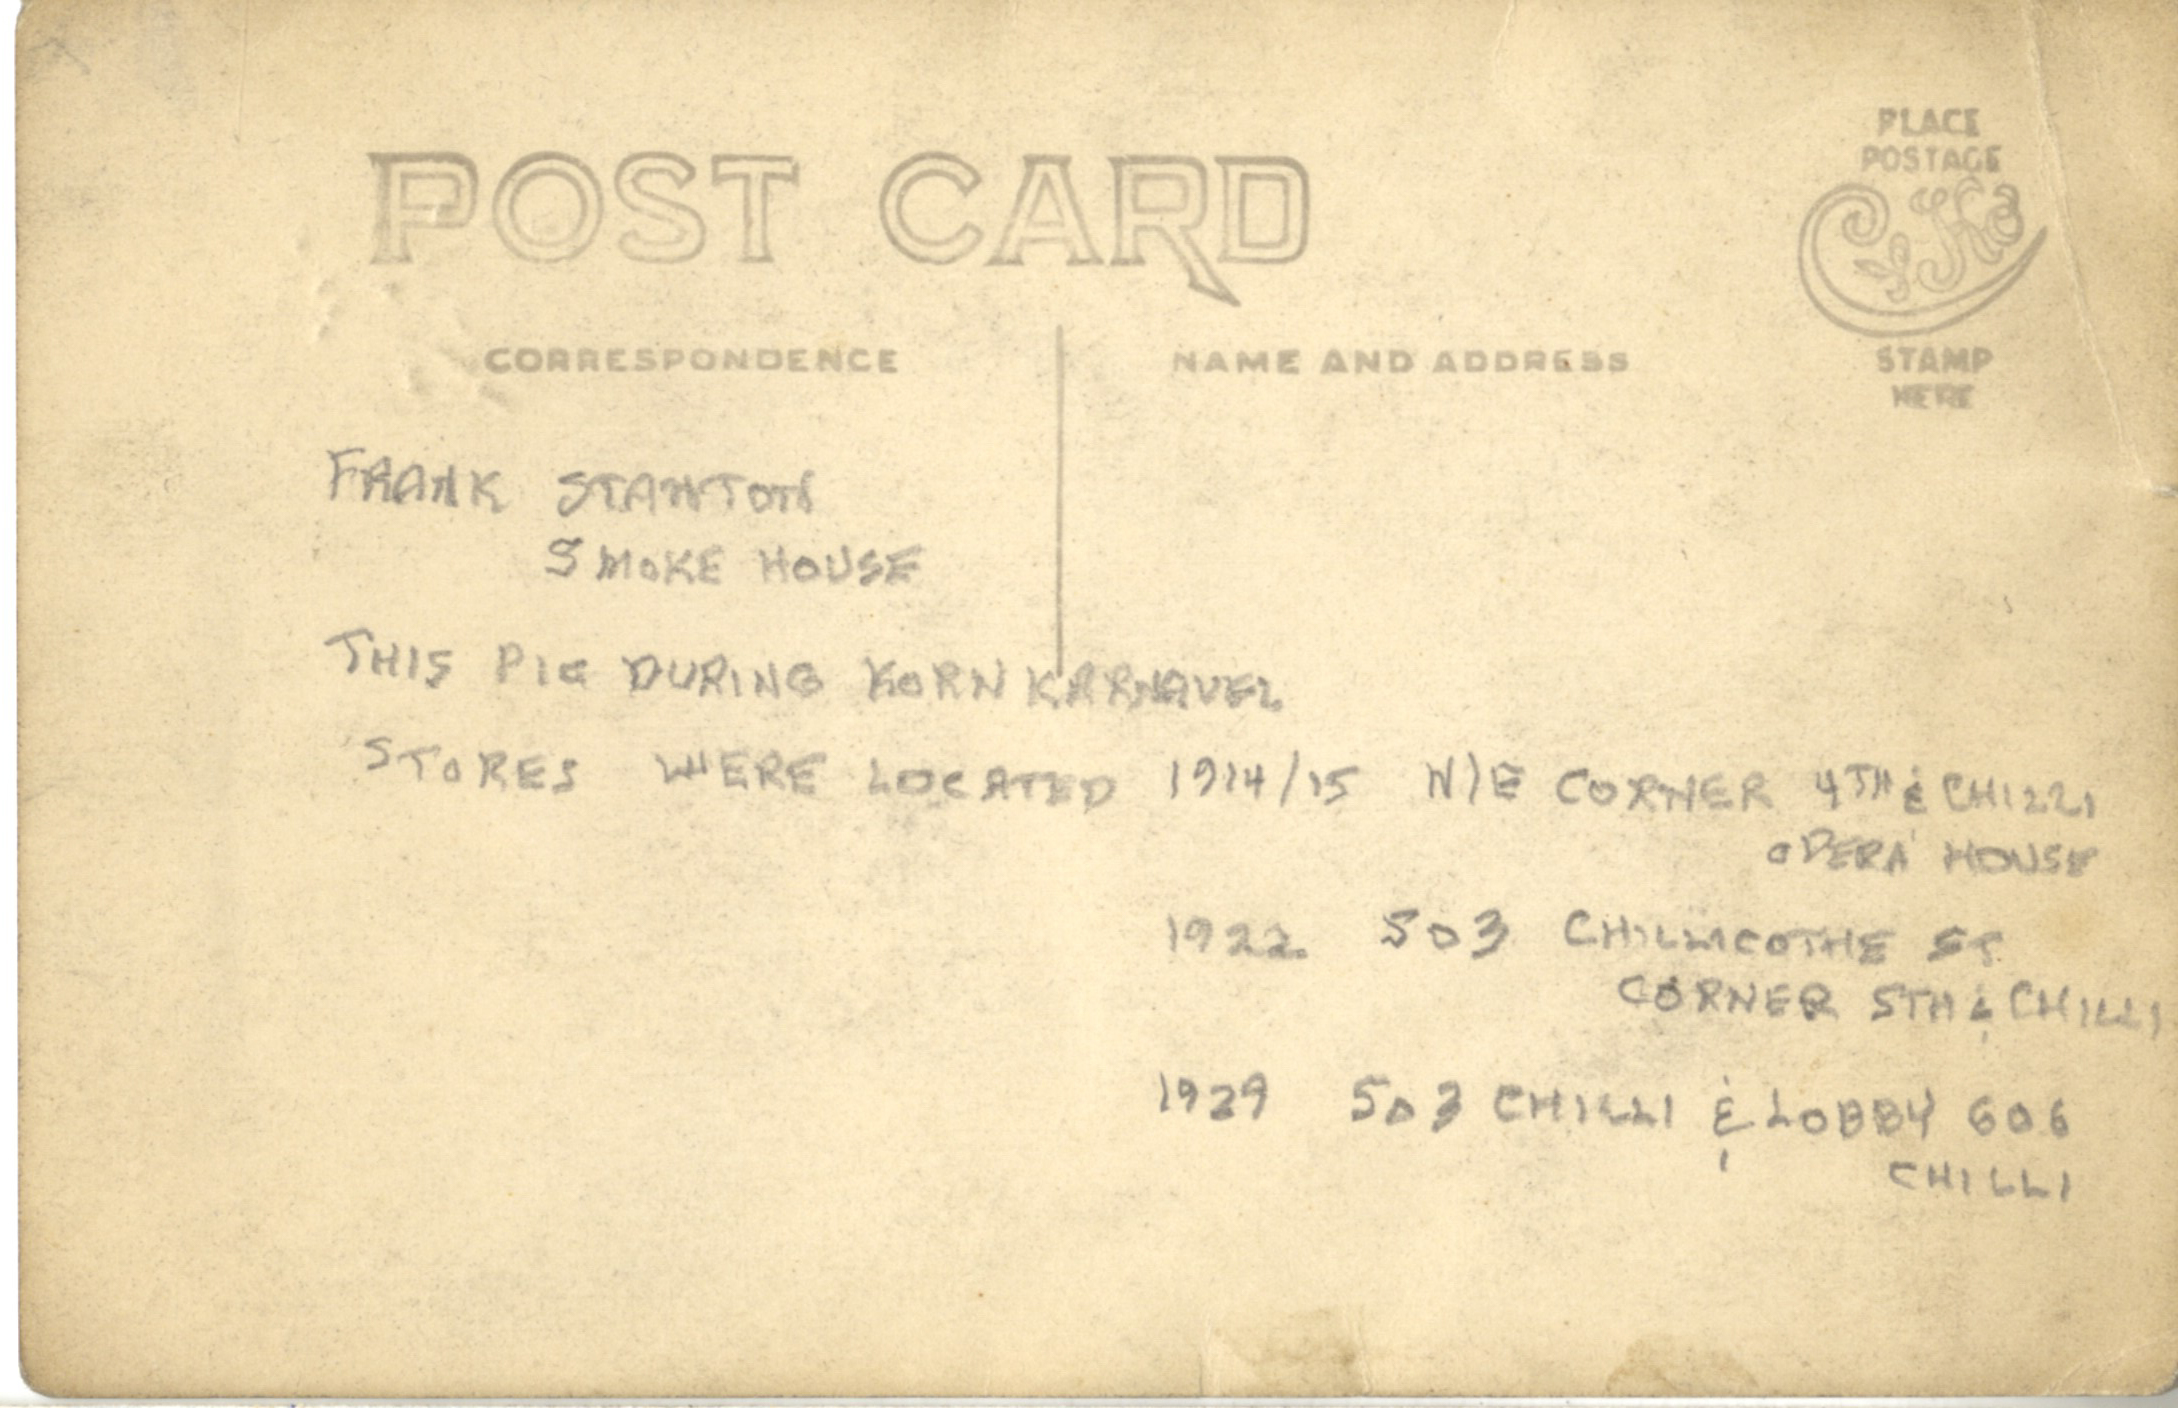 POST CARD
PLACE
POSTAGE
STAMP
HERE
CORRESPONDENCE
NAME AND ADDRESS
FRANK STANTON
SMOKE HOUSE
THIS PIC DURING KORN KARNAVEL
STORES WERE LOCATED 1914/15 N/E CORNER 4TH & CHILLI
OPERA HOUSE
1922 503 CHILLICOTHE ST
CORNER 5TH & CHILLI
1929 503 CHILLI & LOBBY 606
CHILLI